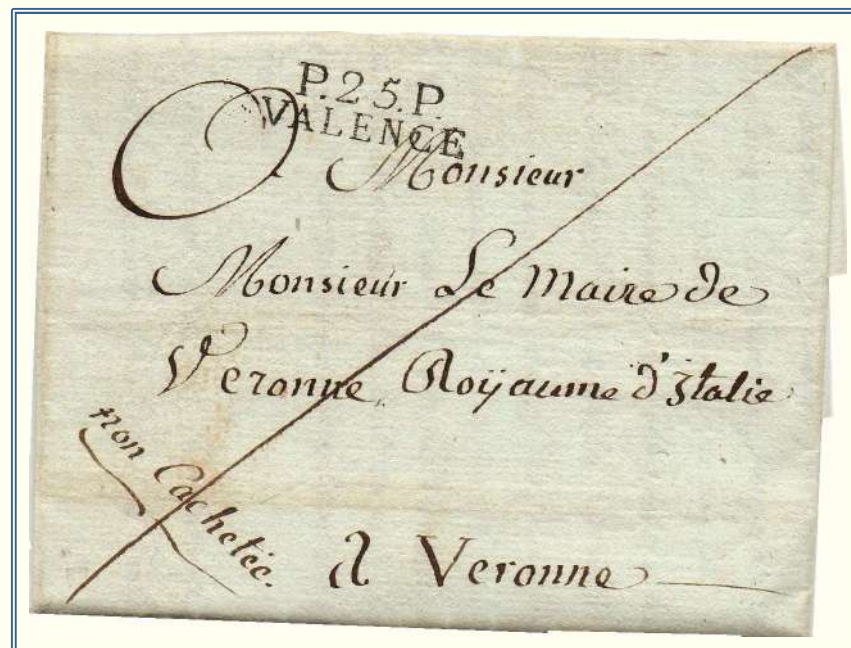 P.25.P.
VALENCE
Monsieur
Monsieur Le Maire de
Veronne, Royaume d'Italie
non Cachetée.
a Veronne